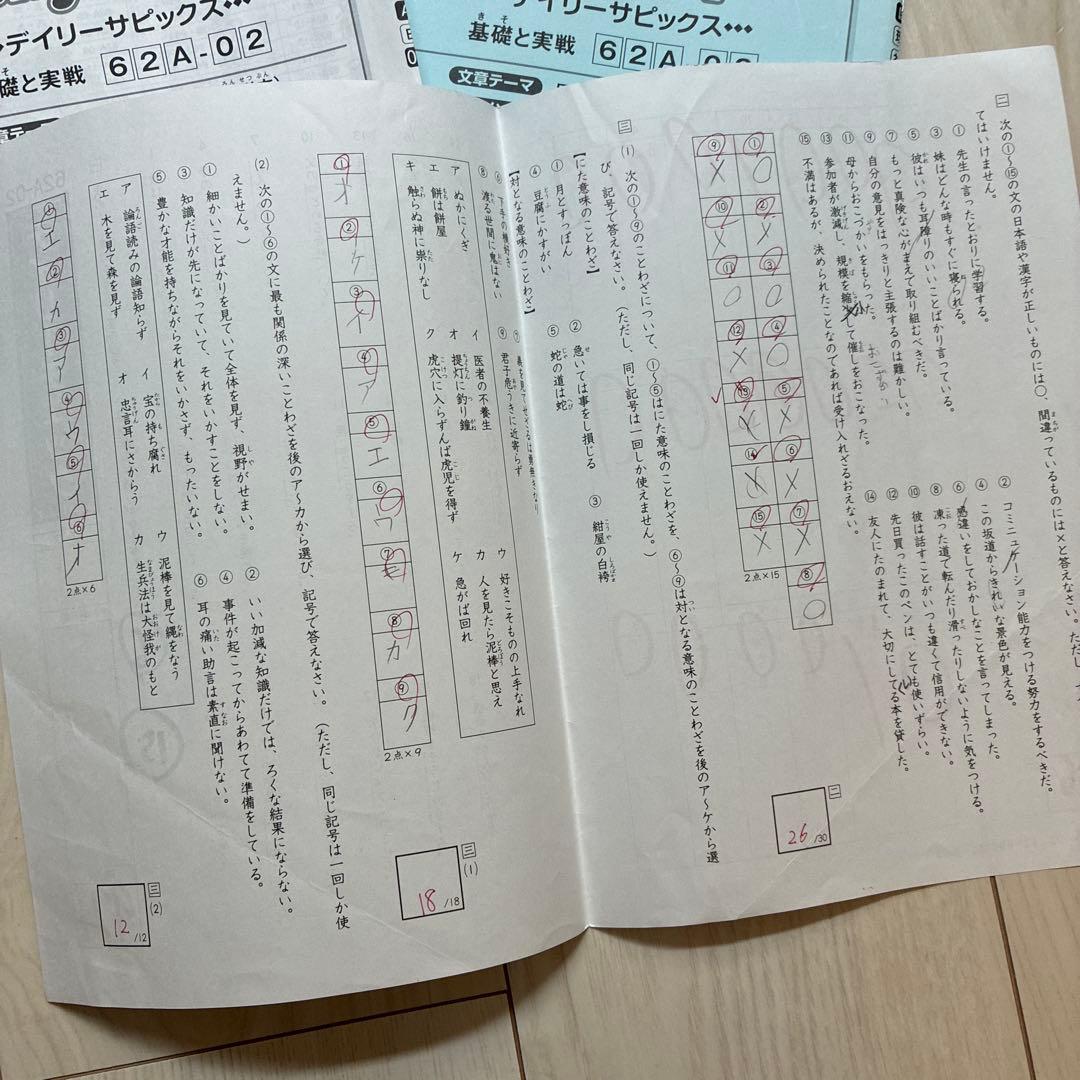 デイリーサピックス…
基礎と実戦 62A-02
デイリーサピックス…
基礎と実戦 62A-0
文章テーマ
二 次の①〜⑮の文の日本語や漢字が正しいものには○、間違っているものには×と答えなさい。ただし
てはいけません。
① 先生の言ったとおりに学習する。
② コミニュケーション能力をつける努力をするべきだ。
③ 妹はどんな時もすぐに寝られる。
④ この坂道からきれいな景色が見える。
⑤ 彼はいつも耳障りのいいことばかり言っている。
⑥ 感違いをしておかしなことを言ってしまった。
⑦ もっと真険な心がまえで取り組むべきだ。
⑧ 凍った道で転んだり滑ったりしないように気をつける。
⑨ 自分の意見をはっきりと主張するのは難かしい。
⑩ 彼は話すことがいつも違くて信用ができない。
⑪ 母からおこづかいをもらった。
⑫ 先日買ったこのペンは、とても使いずらい。
⑬ 参加者が激減し、規模を縮して催しをおこなった。
⑭ 友人にたのまれて、大切にしてる本を貸した。
⑮ 不満はあるが、決められたことなのであれば受け入れざるおえない。
① ○
② ×
③ ○
④ ○
⑤ ×
⑥ ×
⑦ ×
⑧ ○
⑨ ×
⑩ ×
⑪ ○
⑫ ×
⑬
⑭
⑮ ×
2点×15
二
26/30
三 (1) 次の①〜⑨のことわざについて、①〜⑤はにた意味のことわざを、⑥〜⑨は対となる意味のことわざを後のア〜ケから選
び、記号で答えなさい。（ただし、同じ記号は一回しか使えません。）
【にた意味のことわざ】
① 月とすっぽん
② 急いては事をし損じる
③ 紺屋の白袴
④ 豆腐にかすがい
⑤ 蛇の道は蛇
【対となる意味のことわざ】
⑥ 下手の横好き
⑦ 義を見てせざるは勇無きなり
⑧ 渡る世間に鬼はない
⑨ 君子危うきに近寄らず
ア ぬかにくぎ
イ 医者の不養生
ウ 好きこそものの上手なれ
エ 餅は餅屋
オ 提灯に釣り鐘
カ 人を見たら泥棒と思え
キ 触らぬ神に祟りなし
ク 虎穴に入らずんば虎児を得ず
ケ 急がば回れ
① オ
② ケ
③ イ
④ ア
⑤ エ
⑥ ウ
⑦ キ
⑧ カ
⑨ ク
2点×9
三(1)
18/18
(2) 次の①〜⑥の文に最も関係の深いことわざを後のア〜カから選び、記号で答えなさい。（ただし、同じ記号は一回しか使
えません。）
① 細かいことばかりを見ていて全体を見ず、視野がせまい。
② いい加減な知識だけでは、ろくな結果にならない。
③ 知識だけが先になっていて、それをいかすことをしない。
④ 事件が起こってからあわてて準備をしている。
⑤ 豊かな才能を持ちながらそれをいかさず、もったいない。
⑥ 耳の痛い助言は素直に聞けない。
ア 論語読みの論語知らず
イ 宝の持ち腐れ
ウ 泥棒を見て縄をなう
エ 木を見て森を見ず
オ 忠言耳にさからう
カ 生兵法は大怪我のもと
① エ
② カ
③ ア
④ ウ
⑤ イ
⑥ オ
2点×6
三(2)
12/12